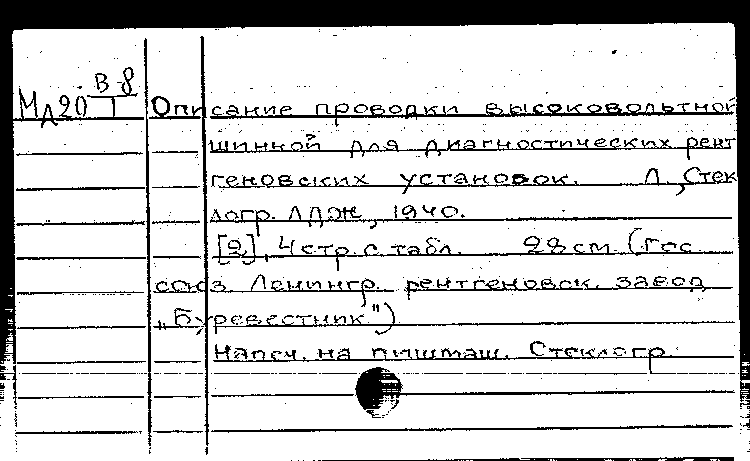 В-8
Мл20 1
Описание проводки высоковольтной
шинкой для диагностических рент
геновских установок. Л., Стек
логр. ЛДЖ, 1940.
[2], 4 стр. с табл. 28 см. (Гос
союз. Ленингр. рентгеновск. завод
„Буревестник")
Напеч. на пишмаш. Стеклогр.